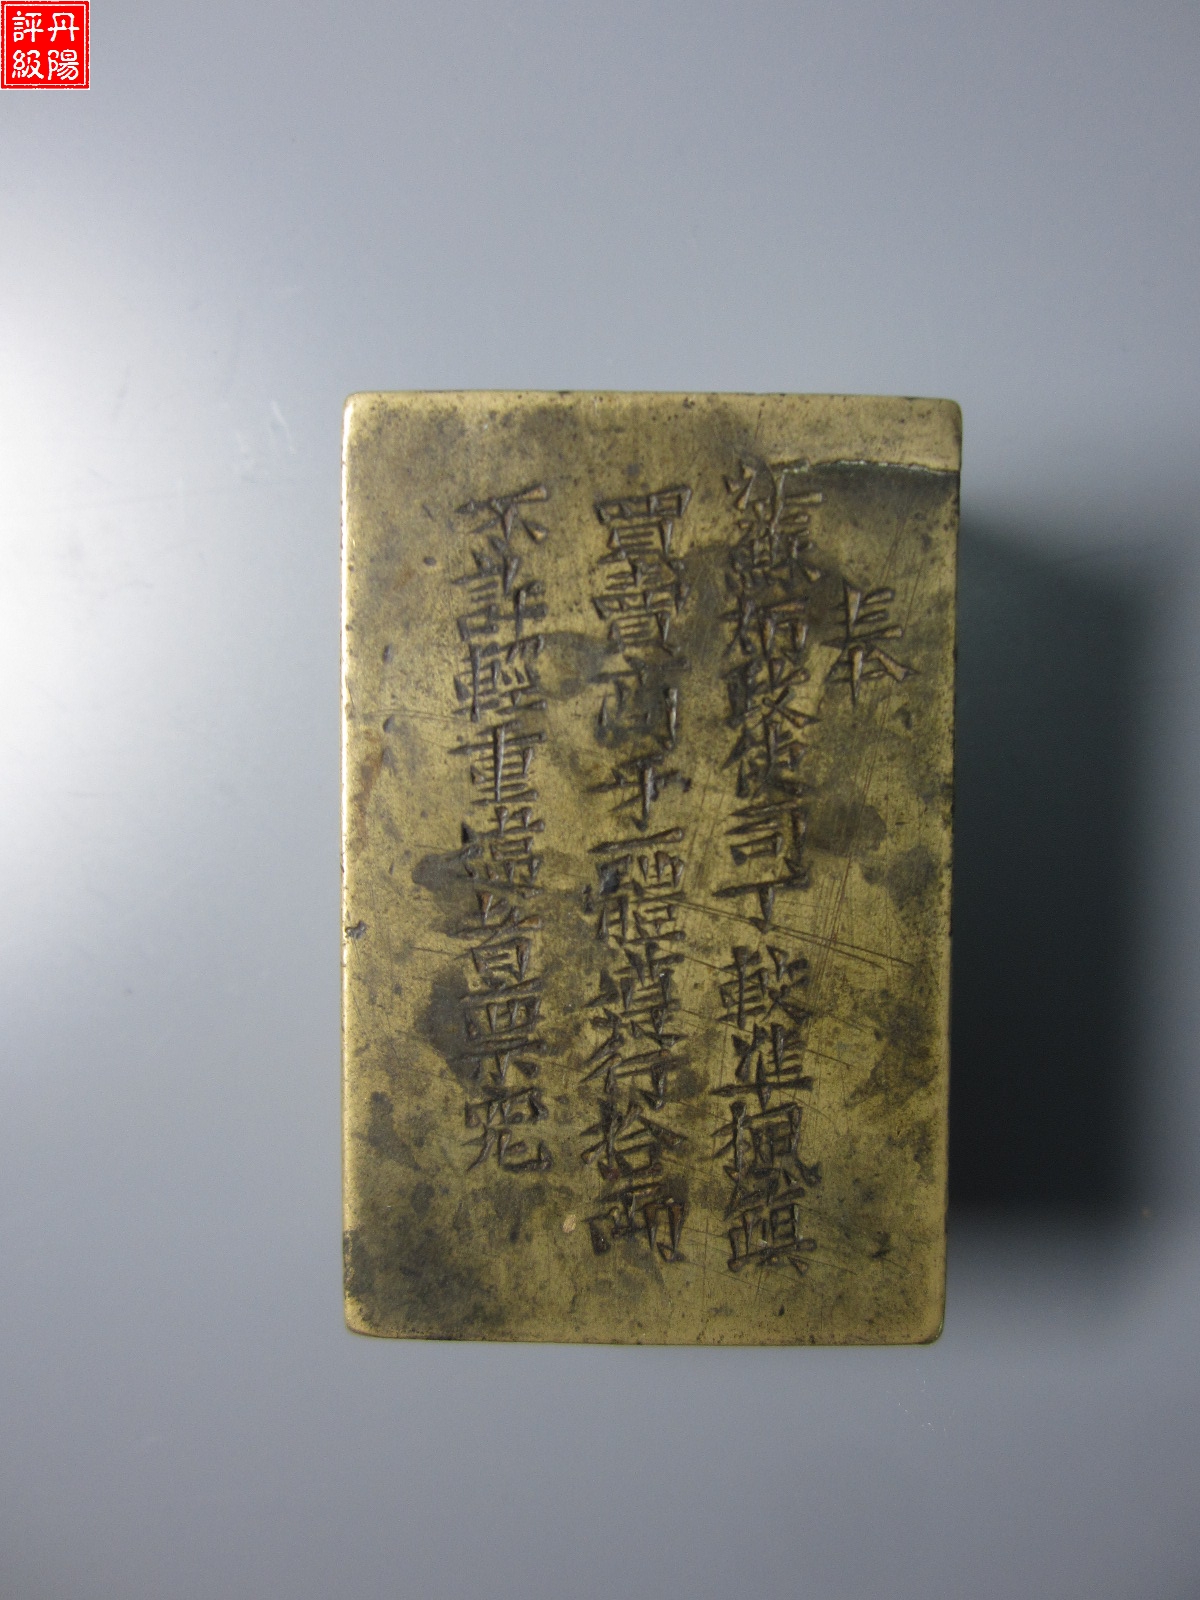 丹陽
評級
奉
江蘇布政使司丁 較準楓鎮
買賣兩平一體遵行拾兩
不許輕重違者稟究